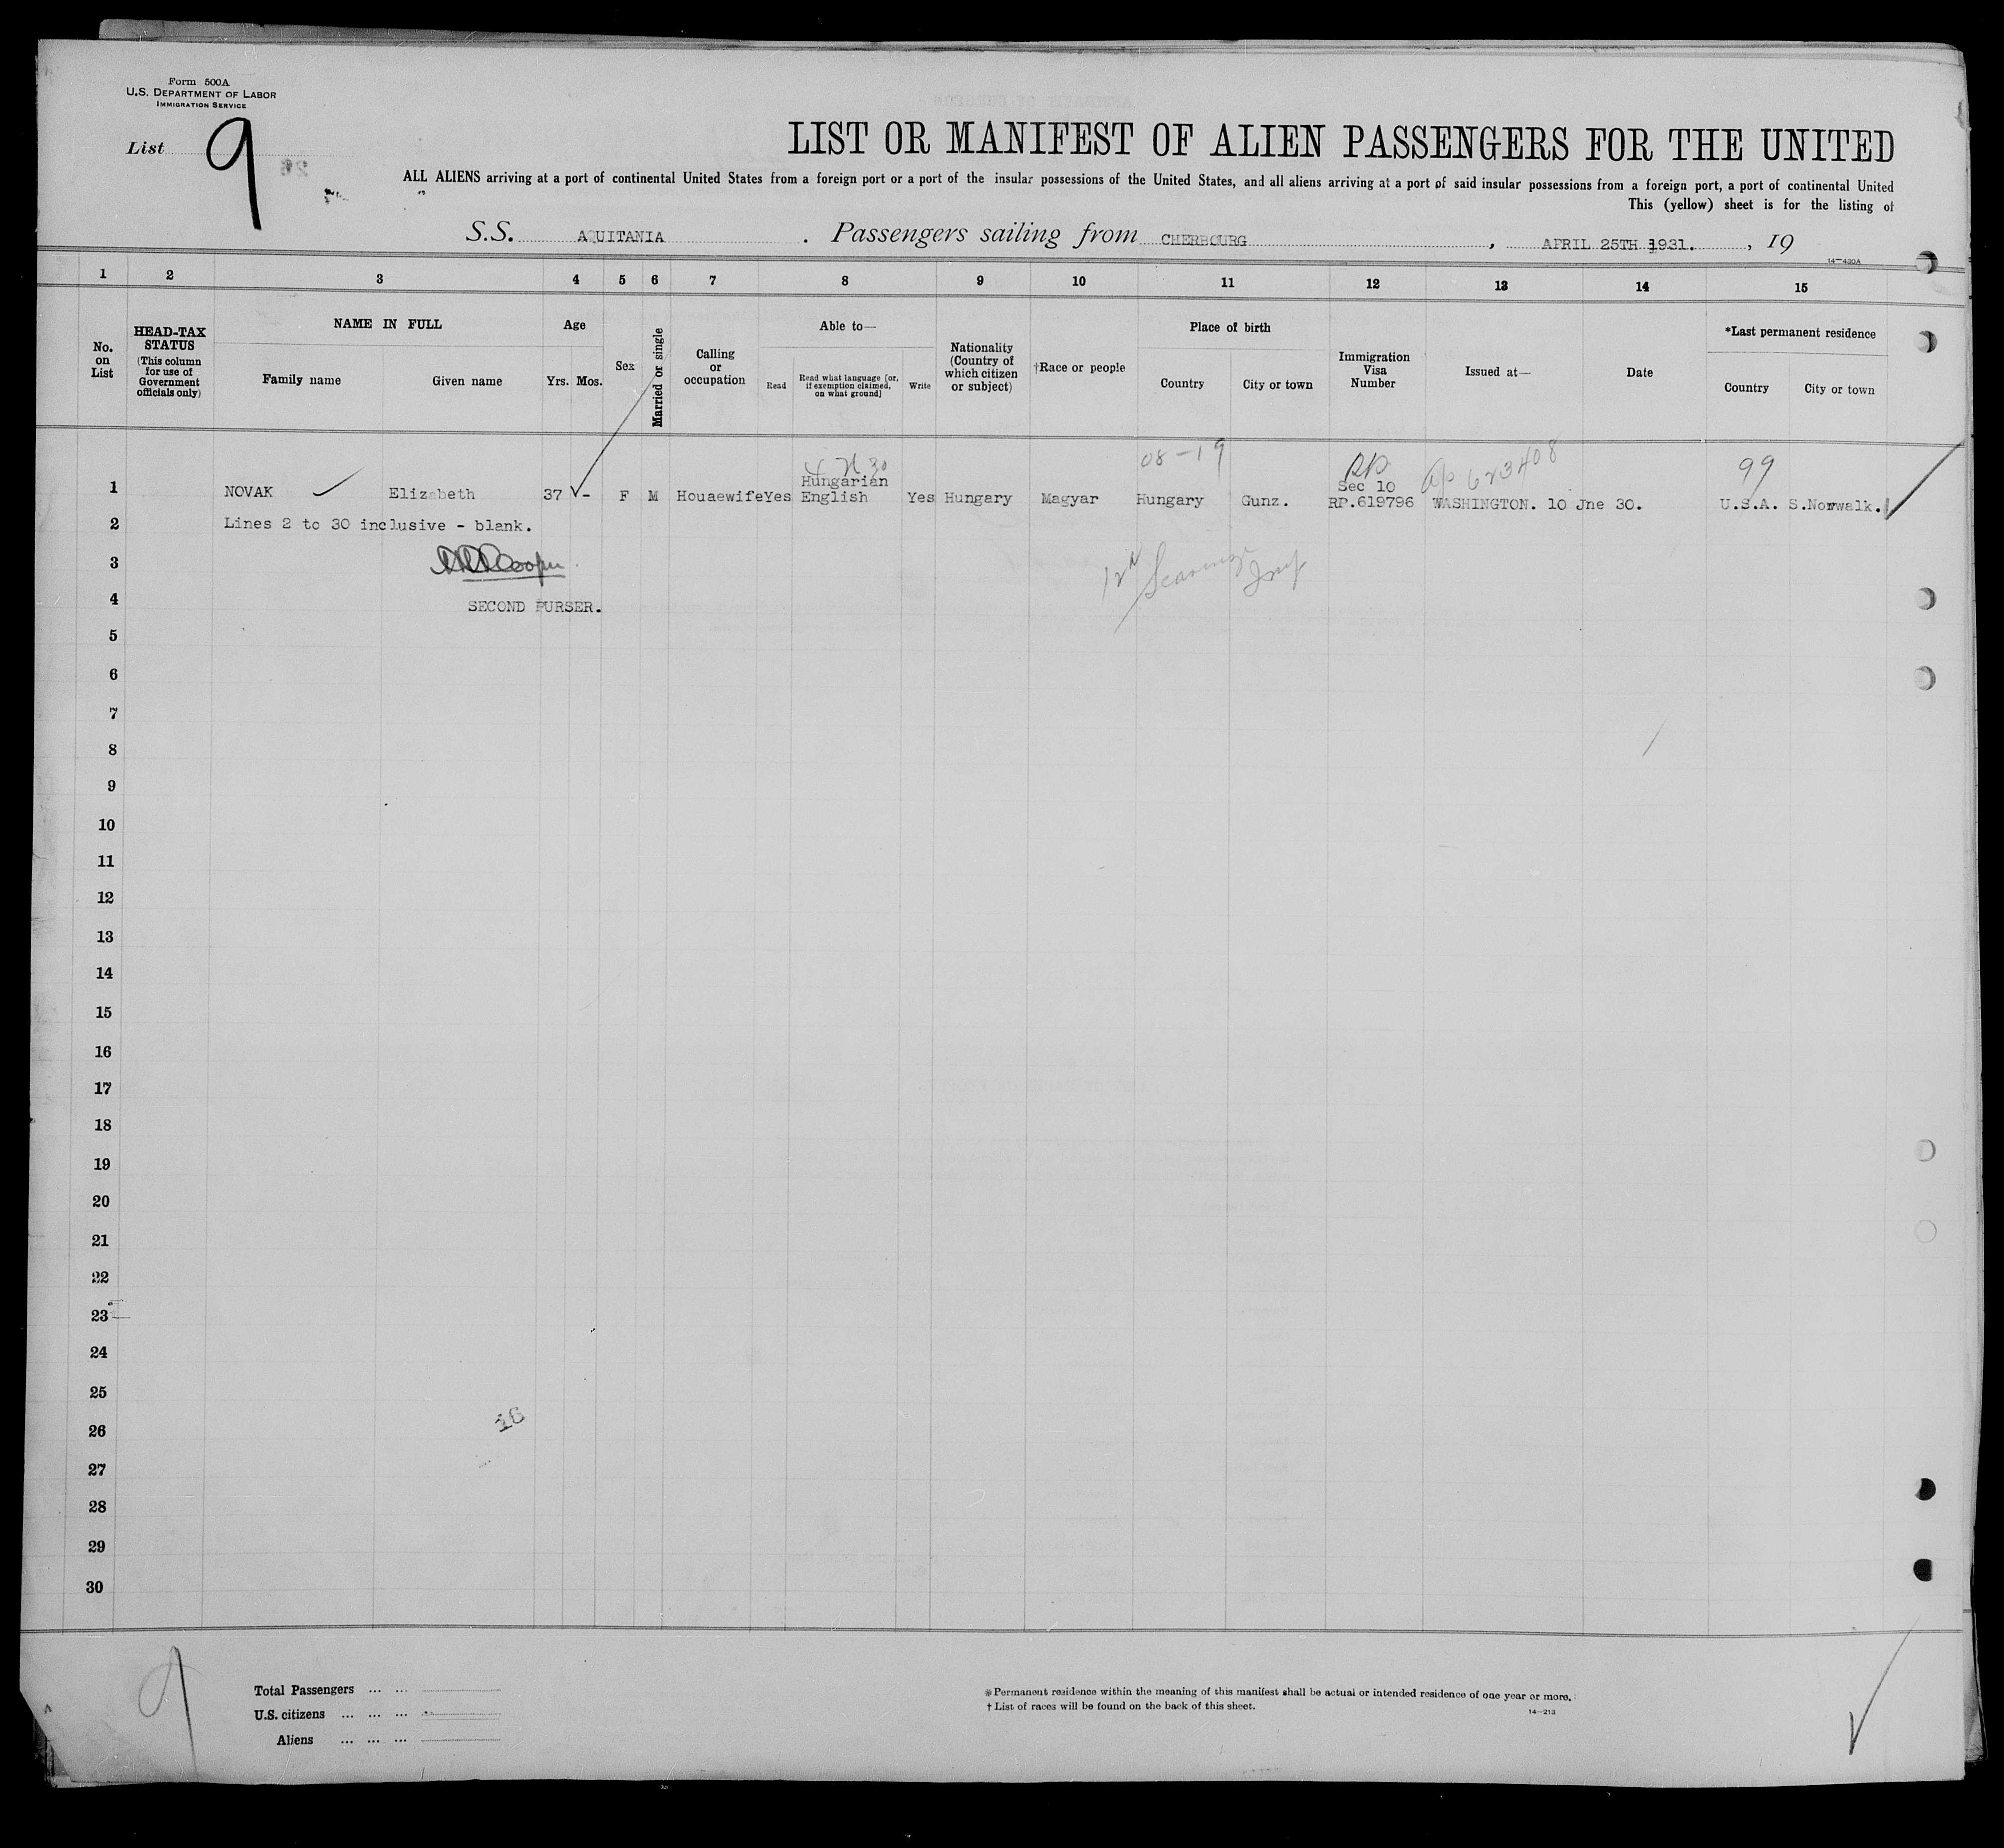 Form 500A
U.S. DEPARTMENT OF LABOR
IMMIGRATION SERVICE
List 9
26
LIST OR MANIFEST OF ALIEN PASSENGERS FOR THE UNITED
ALL ALIENS arriving at a port of continental United States from a foreign port or a port of the insular possessions of the United States, and all aliens arriving at a port of said insular possessions from a foreign port, a port of continental United
This (yellow) sheet is for the listing of
S.S. AQUITANIA . Passengers sailing from CHERBOURG , APRIL 25TH 1931. , 19
14-430A
1 2 3 4 5 6 7 8 9 10 11 12 13 14 15
No. on List
HEAD-TAX STATUS
(This column for use of Government officials only)
NAME IN FULL
Family name Given name
Age
Yrs. Mos.
Sex
Married or single
Calling or occupation
Able to—
Read
Read what language [or, if exemption claimed, on what ground]
Write
Nationality (Country of which citizen or subject)
†Race or people
Place of birth
Country City or town
Immigration Visa Number
Issued at—
Date
*Last permanent residence
Country City or town
08-19
99
4 30
Hungarian
RP
Sec 10
623408
1 NOVAK Elizabeth 37 - F M Houaewife Yes English Yes Hungary Magyar Hungary Gunz. RP.619796 WASHINGTON. 10 Jne 30. U.S.A. S.Norwalk.
2 Lines 2 to 30 inclusive - blank.
3 Cooper
4 SECOND PURSER.
5
6
7
8
9
10
11
12
13
14
15
16
17
18
19
20
21
22
23
24
25
26
27
28
29
30
16
9
Total Passengers ... ...
U.S. citizens ... ... ...
Aliens ... ... ...
*Permanent residence within the meaning of this manifest shall be actual or intended residence of one year or more.
† List of races will be found on the back of this sheet.
14-213